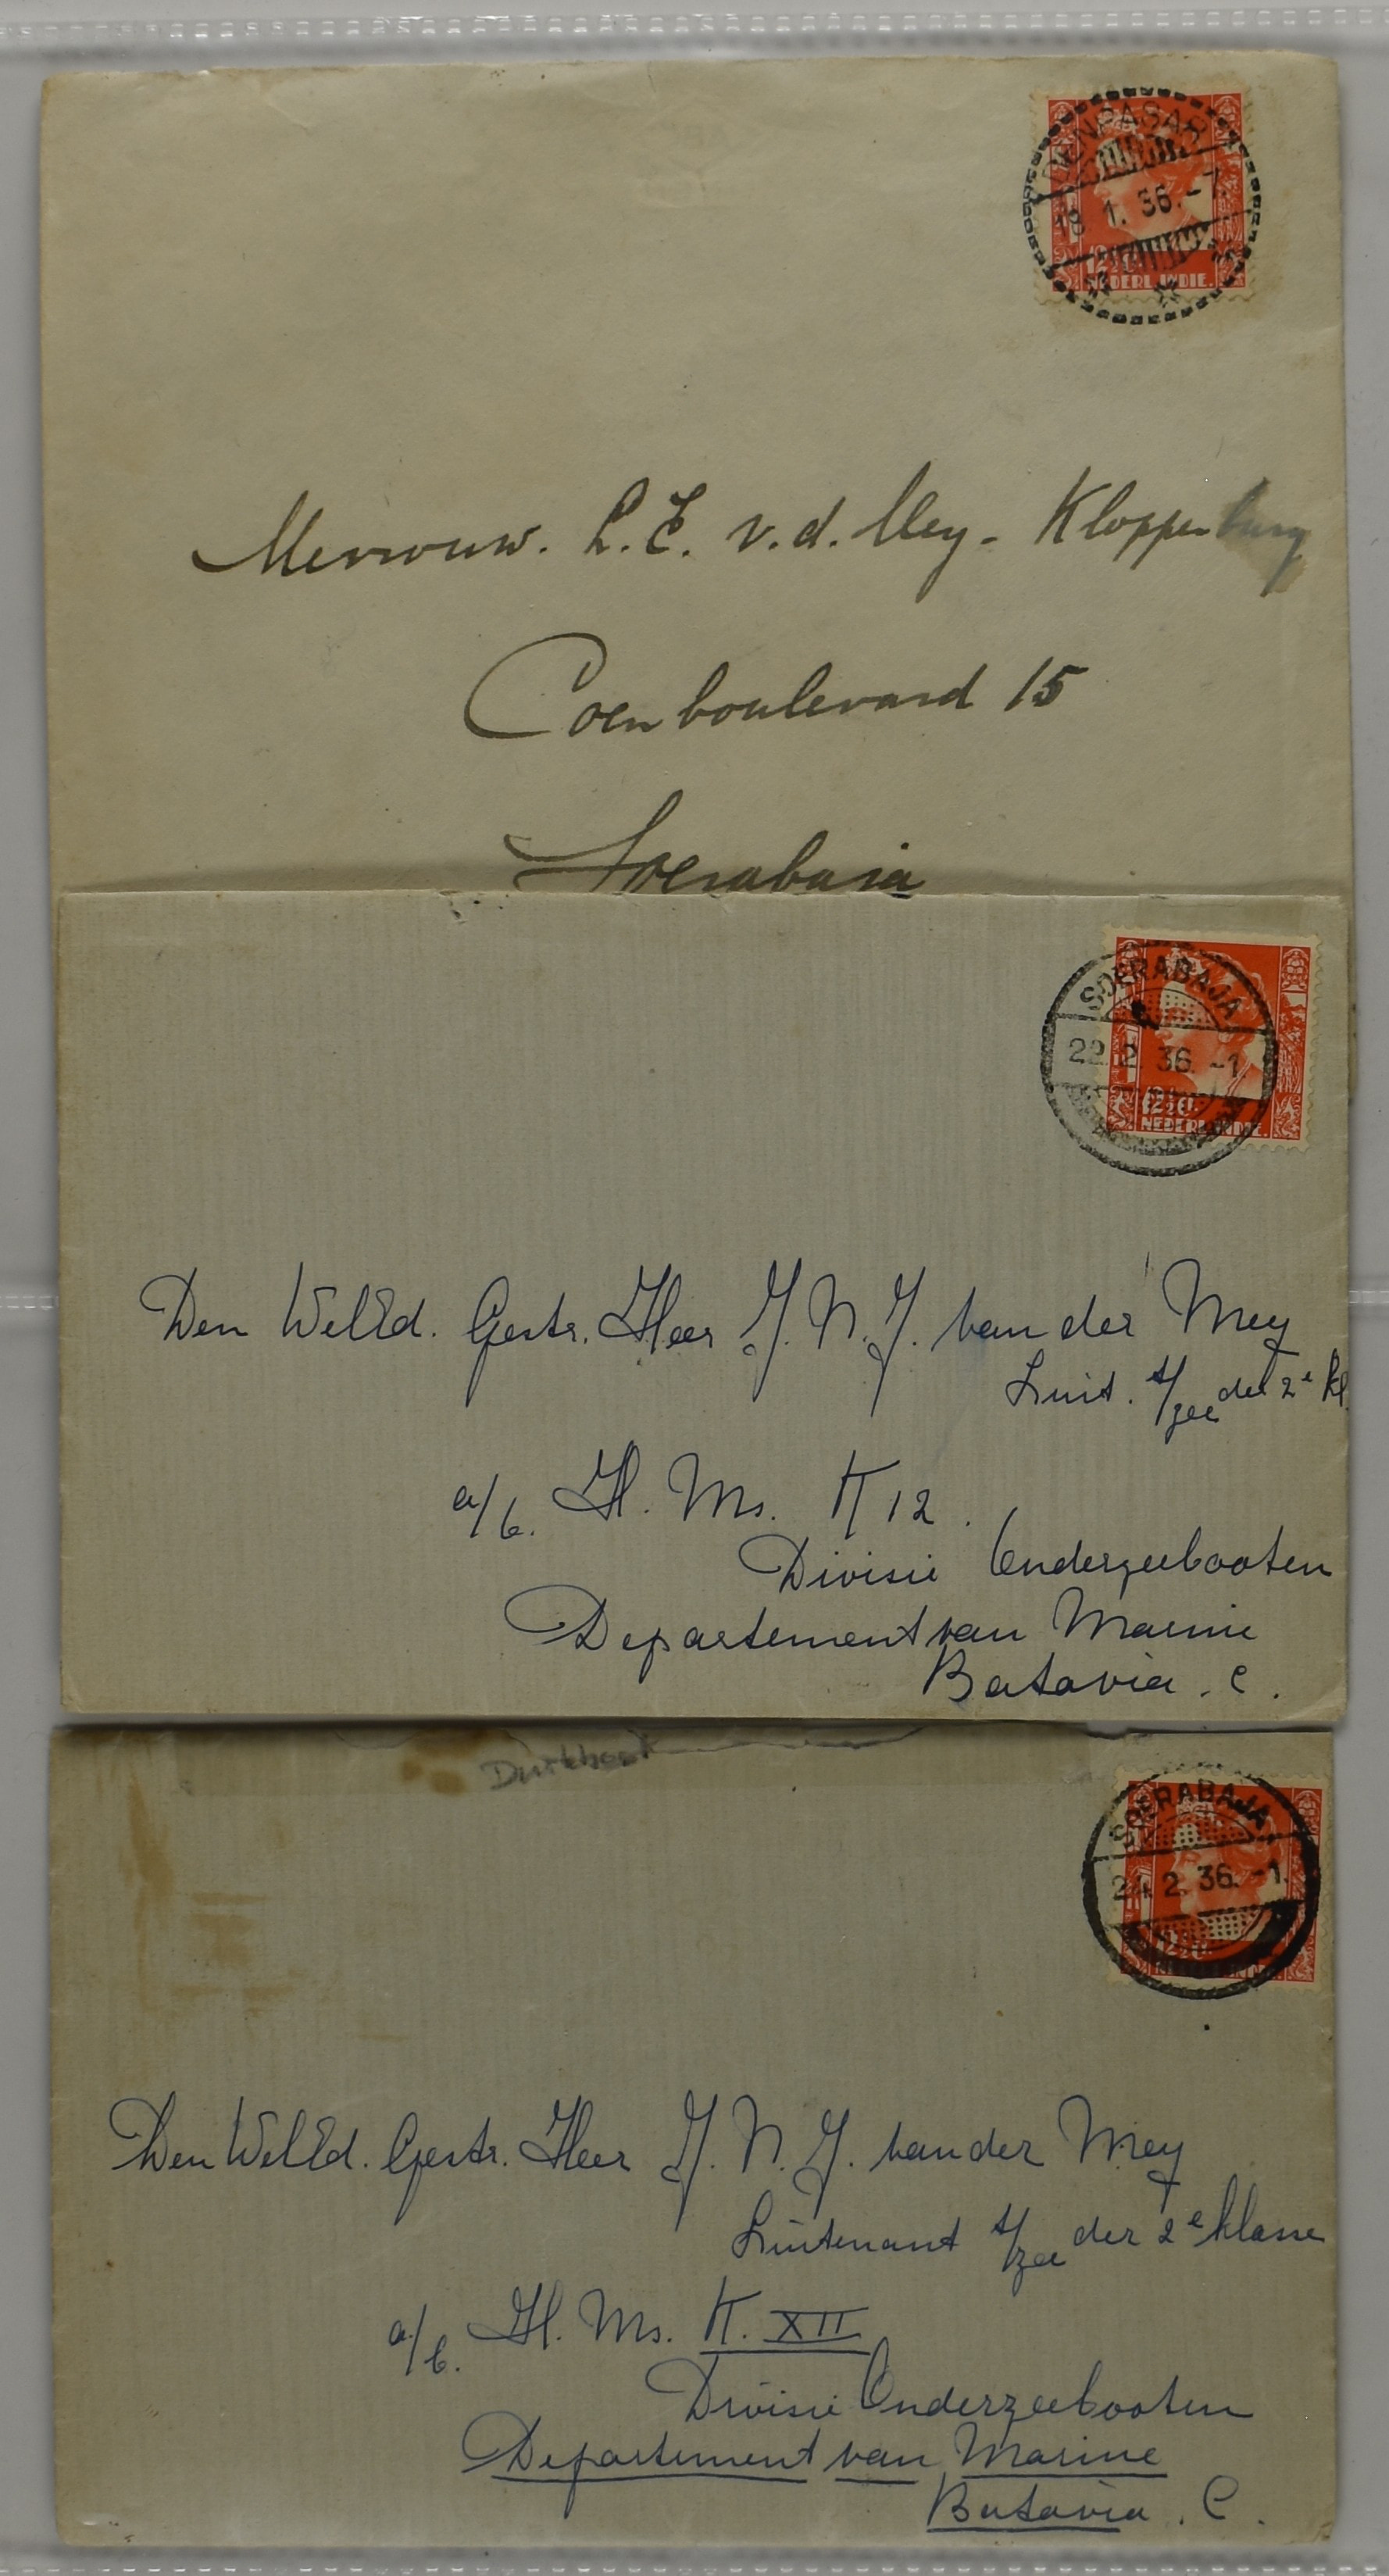 DENPASAR
18 1. 36.-7.
12½ct
NEDERL.INDIE.
Mevrouw. L. E. v. d. Mey - Kloppenburg
Coenboulevard 15
Soerabaja
SOERABAJA
22. 2 36. -1.
12½ct.
NEDERL.INDIE.
Den WelEd. Gestr. Heer J. N. J. van der Mey
Luit. t/zee der 2e kl.
a/b. H. Ms. K 12.
Divisie Onderzeebooten
Departement van Marine
Batavia. C.
SOERABAJA
24 2. 36. -1.
Den WelEd. Gestr. Heer J. N. J. van der Mey
Luitenant t/zee der 2e klasse
a/b. H. Ms. K. XII
Divisie Onderzeebooten
Departement van Marine
Batavia. C.